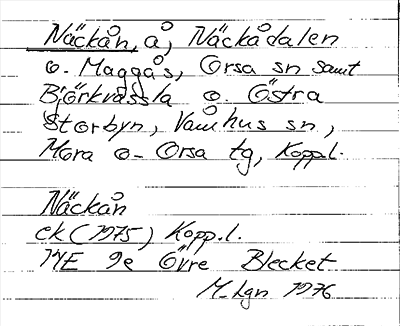 Näckån, å, Näckådalen
o. Maggås, Orsa sn samt
Björkvassla o. Östra
Storbyn, Våmhus sn,
Mora o. Orsa tg, Kopp.l.
Näckån
ek (1975) Kopp.l.
14E 9e Övre Blecket
M-lgn 1976